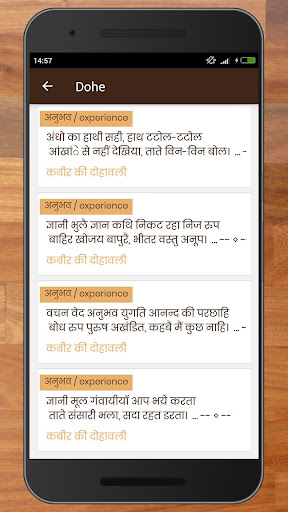 14:57
Dohe
अनुभव / experience
अंधो का हाथी सही, हाथ टटोल-टटोल
आंखांे से नहीं देखिया, ताते विन-विन बोल। ... -
कबीर की दोहावली
अनुभव / experience
ज्ञानी भुले ज्ञान कथि निकट रहा निज रुप
बाहिर खोजय बापुरै, भीतर वस्तु अनूप। ... -- ⋄ -
कबीर की दोहावली
अनुभव / experience
वचन वेद अनुभव युगति आनन्द की परछाहि
बोध रुप पुरुष अखंडित, कहबै मैं कुछ नाहि। ... -
कबीर की दोहावली
अनुभव / experience
ज्ञानी मूल गंवायीयाँ आप भये करता
ताते संसारी भला, सदा रहत डरता। ... -- ⋄ --
कबीर की दोहावली